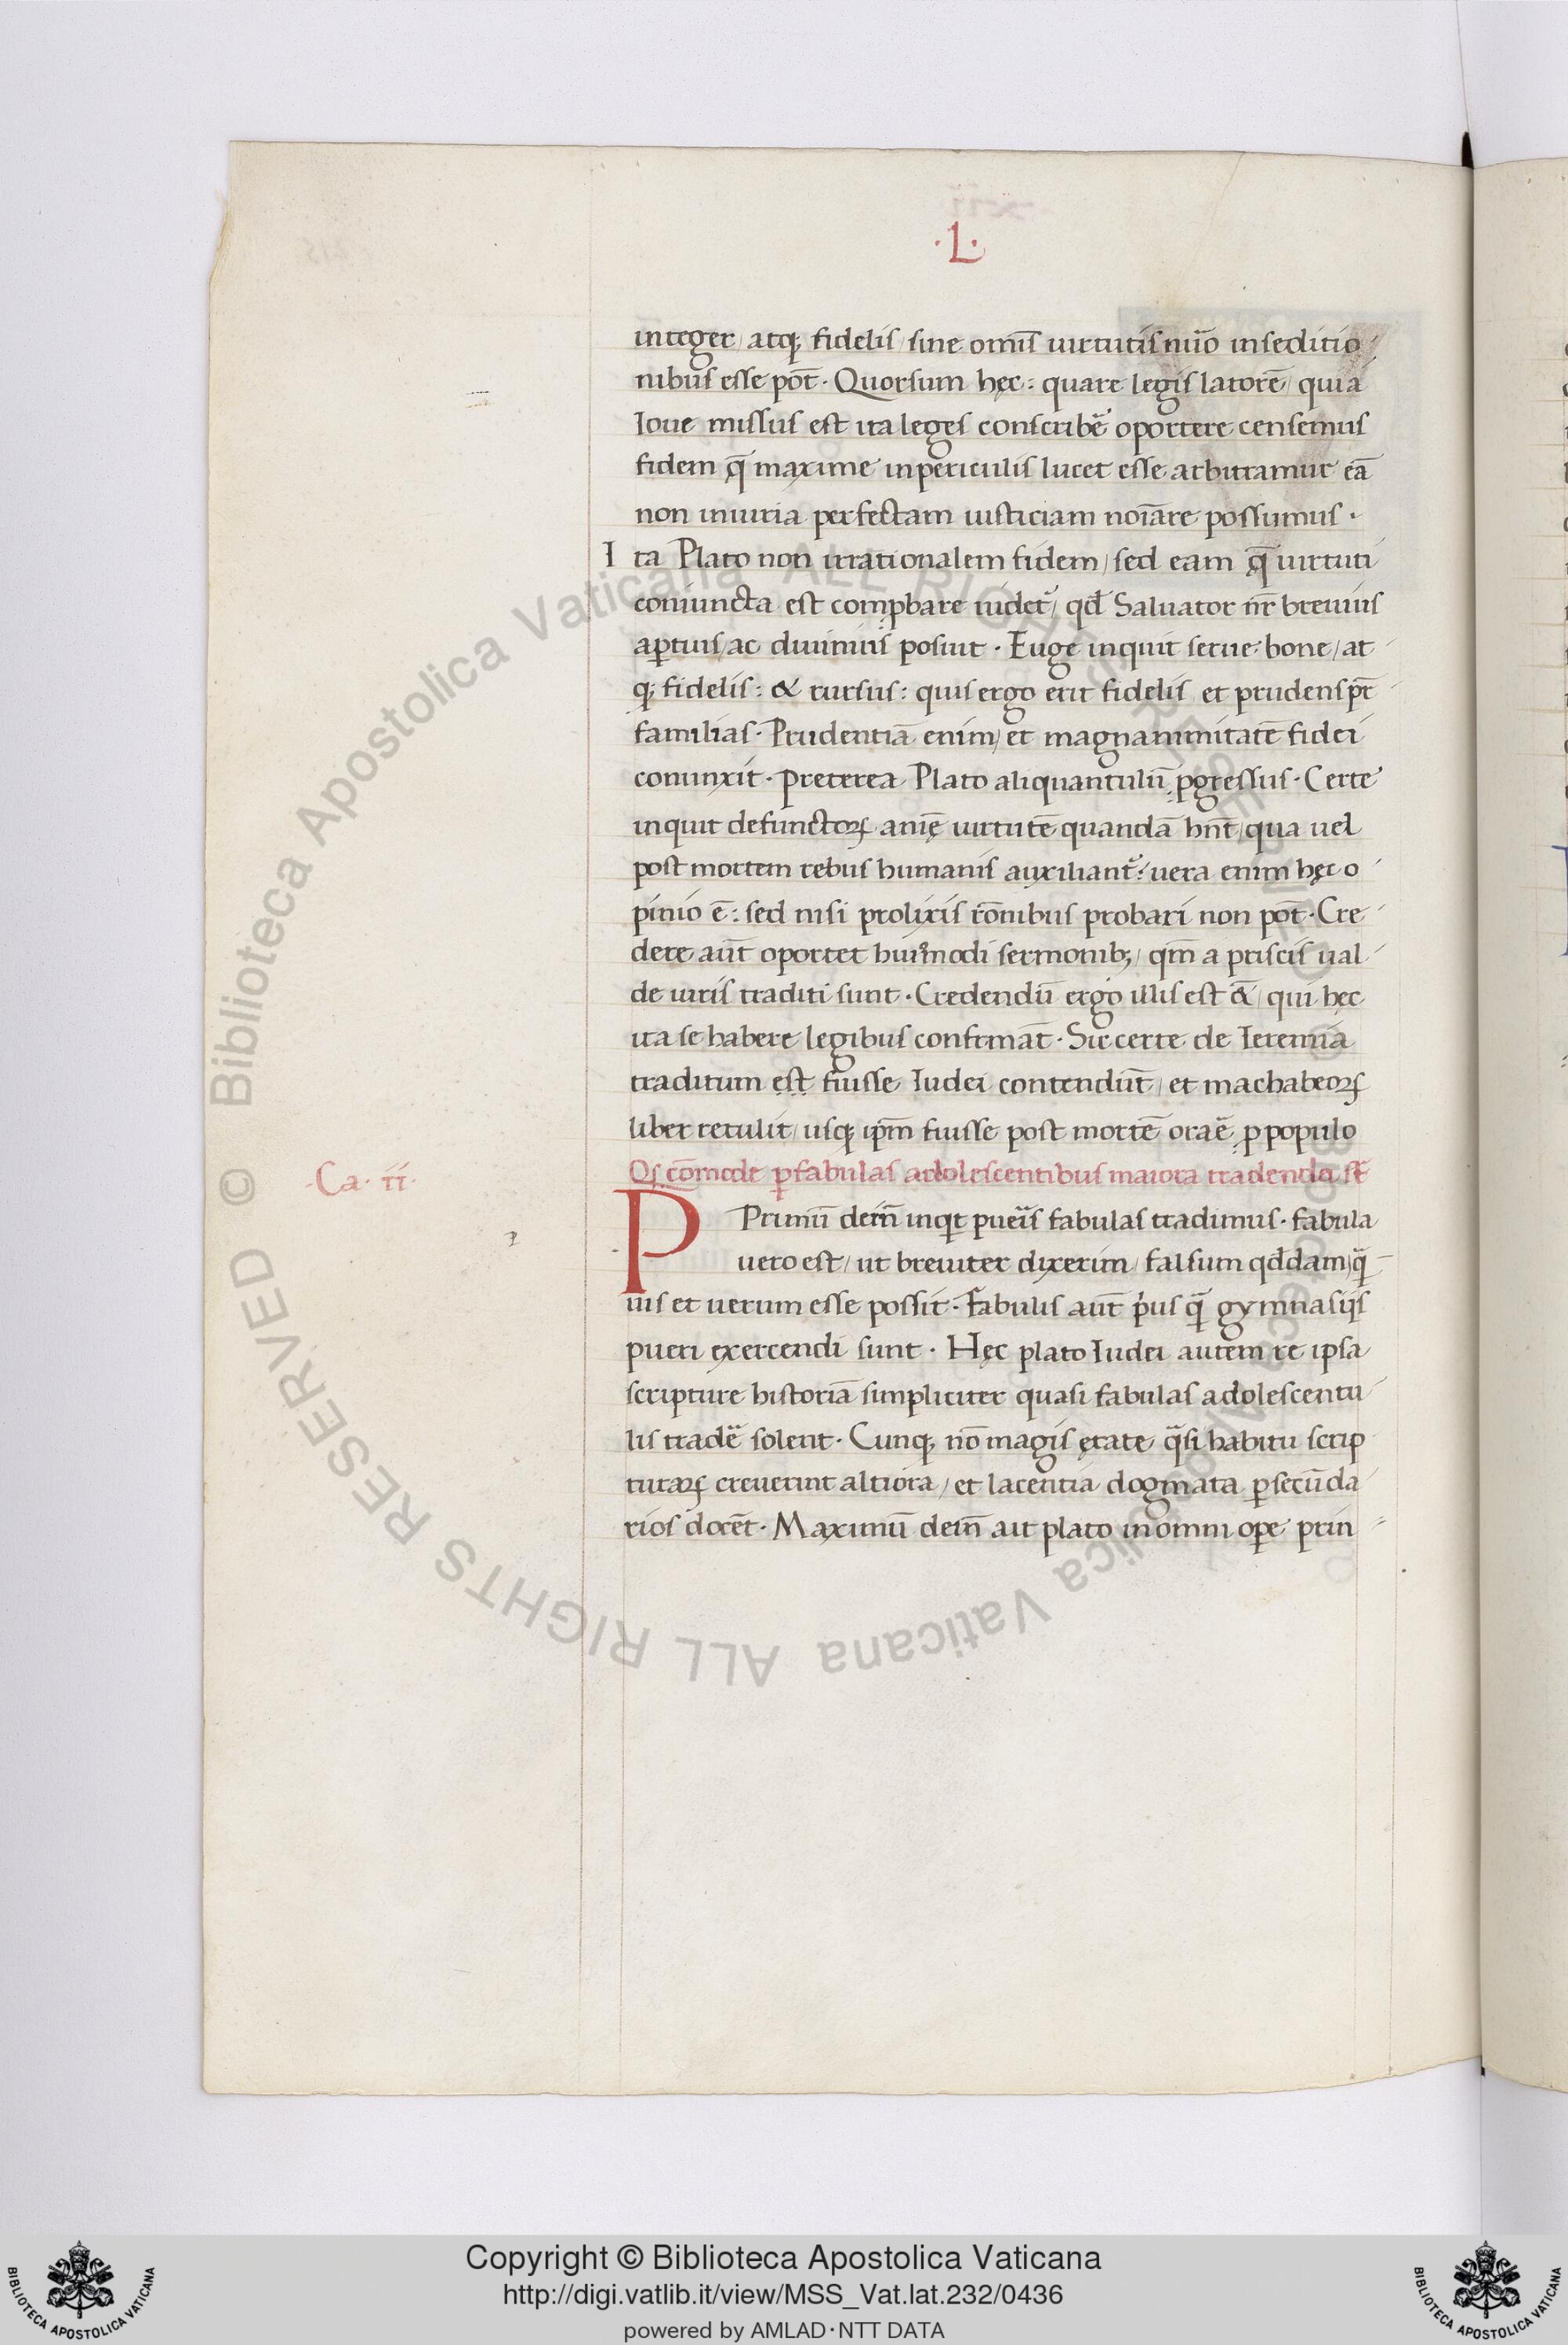 ·L·
integer / atq; fidelis / sine omīs uirtutis nūo in seditio
nibus esse pōt · Quorsum hęc : quare legis latorē / quia
Ioue missus est ita leges conscribē oportere censemus
fidem q̄ maxime in periculis lucet esse arbitramur eā
non iniuria perfectam iusticiam noīare possumus ·
Ita Plato non irrationalem fidem / sed eam q̄ uirtuti
coniuncta est comꝓbare uidet᷑ / qđ Saluator nr̄ breuius
aꝑtius / ac diuinius posuit · Euge inquit serue bone / at
q; fidelis : & rursus : quis ergo erit fidelis et prudens pr̄
familias · Prudentiā enim / et magnanimitatē fidei
coniunxit · preterea Plato aliquantulū ꝓgressus · Certe
inquit defunctoꝝ anię uirtutē quandā hn̄t / qua uel
post mortem rebus humanis auxiliant᷑ : uera enim hęc o
pinio ē : sed nisi prolixis rōnibus probari non pōt · Cre
dere aūt oportet huiꝰmodi sermonib; / qm̄ a priscis ual
de uiris traditi sunt · Credendū ergo illis est &̄ / qui hęc
ita se habere legibus confirmāt · Sic certe de Ieremia
traditum est fuisse Iudei contendūt / et machabeoꝝ
liber retulit / usq; ip̄m fuisse post mortē oraē ꝓ populo
Qꝫ cōmode ꝑ fabulas adolescentibus maiora tradenda st̄
·Ca· ii·
P Primū dein̄ inqͥt pueris fabulas tradimus · fabula
uero est / ut breuiter dixerim / falsum qđdam / qͣ
uis et uerum esse possit · Fabulis aūt pͥus qͣ gymnasijs
pueri exercendi sunt · Hęc plato Iudei autem re ipsa
scripture historiā simpliciter quasi fabulas adolescentu
lis tradē solent · Cunq; nō magis ętate qͣsi habitu scrip
turaꝝ creuerint altiora / et latentia dogmata ꝑ secūda
rios docēt · Maximū dein̄ ait plato in omni oꝑe prin
Copyright © Biblioteca Apostolica Vaticana
http://digi.vatlib.it/view/MSS_Vat.lat.232/0436
powered by AMLAD·NTT DATA
BIBLIOTECA APOSTOLICA VATICANA
BIBLIOTECA APOSTOLICA VATICANA
© Biblioteca Apostolica Vaticana ALL RIGHTS RESERVED © Biblioteca Apostolica Vaticana ALL RIGHTS RESERVED